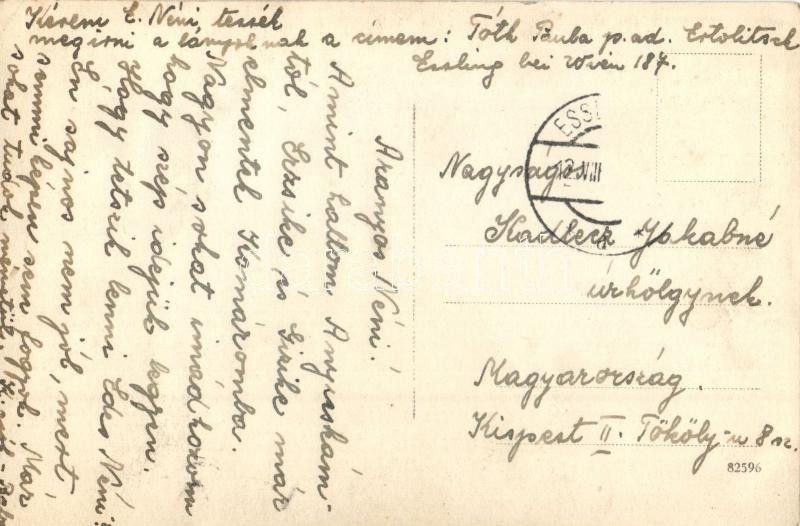 Kérem E. Néni, tessék
megirni a lányoknak a címem: Tóth Buba p. ad.
Essling bei Wien 187.
Aranyos Néni!
Amint hallom Anyuskám-
tól, Erzsike és Gizike már
elmentek Komáromba.
Nagyon sokat imádkozom
hogy szép idejük legyen.
Hogy tetszik lenni Édes Néni?
Én sajnos nem jól, mert
semmi képen sem fogyok. Már
sokat tudok németül.
ESSL
12. VIII
Nagyságos
Kadlecz Jakabné
úrhölgynek.
Magyarország.
Kispest II. Tököly-u 8 sz.
82596